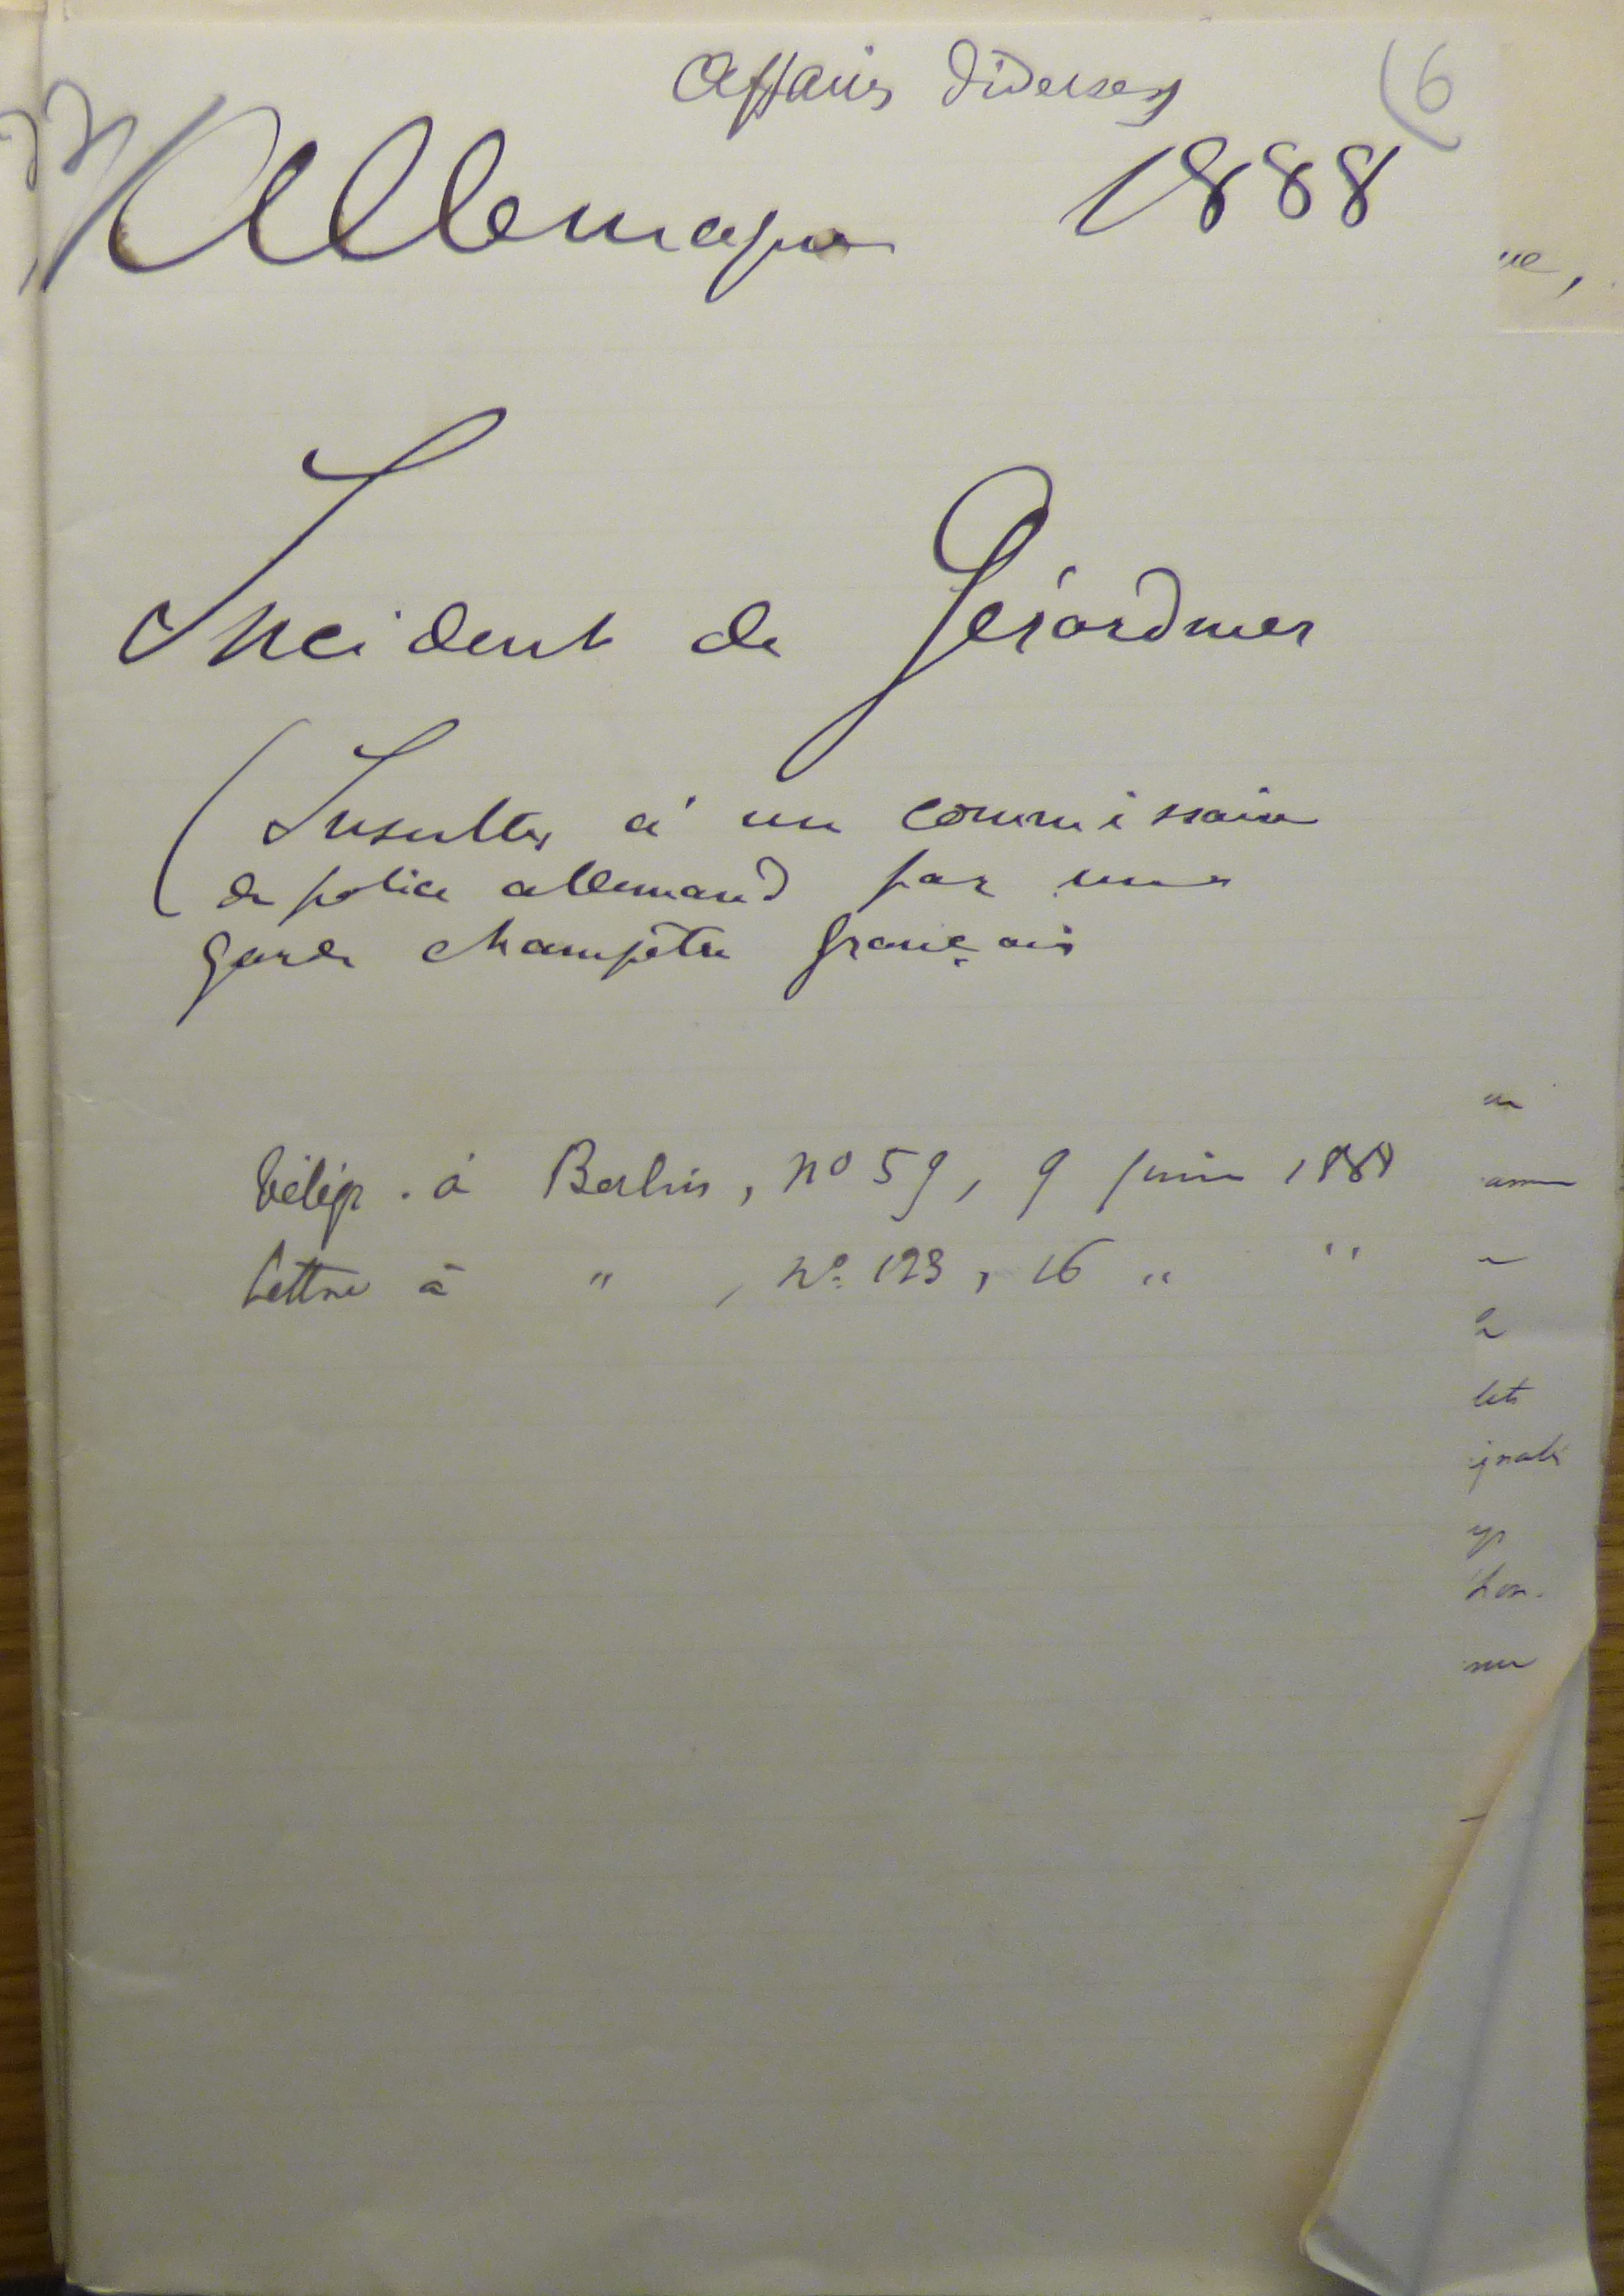 Affaires diverses
16
Allemagne 1888
Incident de Gérardmer
(Insultes à un commissaire
de police allemand par un
garde champêtre français
Télégr. à Berlin, no 59, 9 juin 1888
Lettre à " , no. 123, 16 " "